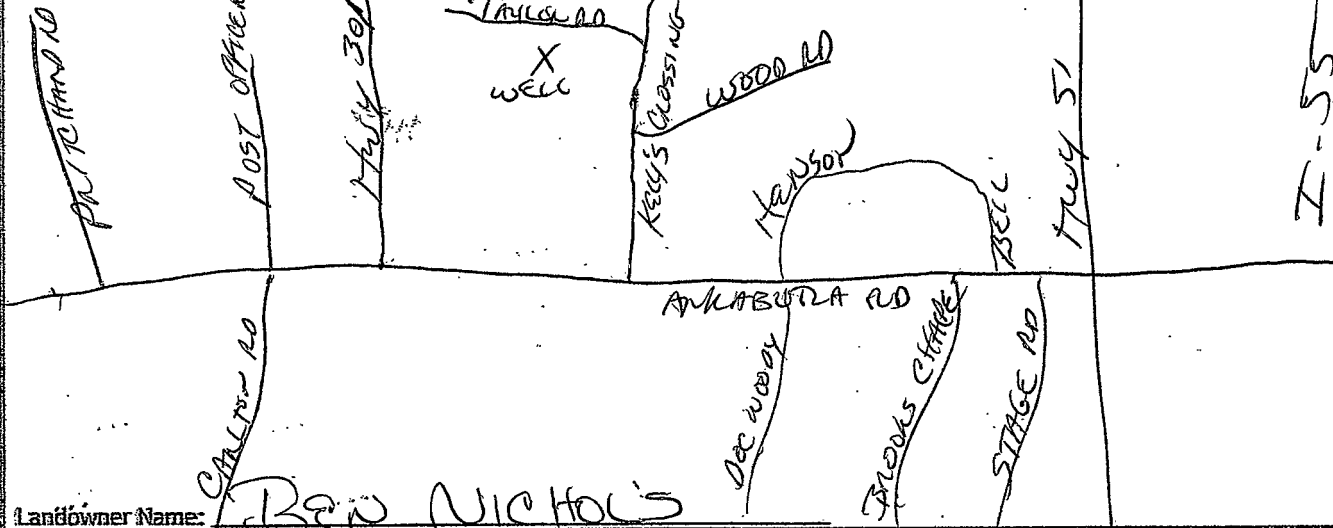 PRITCHARD RD
POST OFFICE R
HWY 301
TAYLOR RD
X
WELL
KELLY'S CROSSING
WOOD RD
HANSON
BELL
HWY 51
I-55
ARKABUTLA RD
CARLTON RD
DOC WOODY
BROOKS CHAPEL
STAGE RD
Landowner Name: BEN NICHOLS